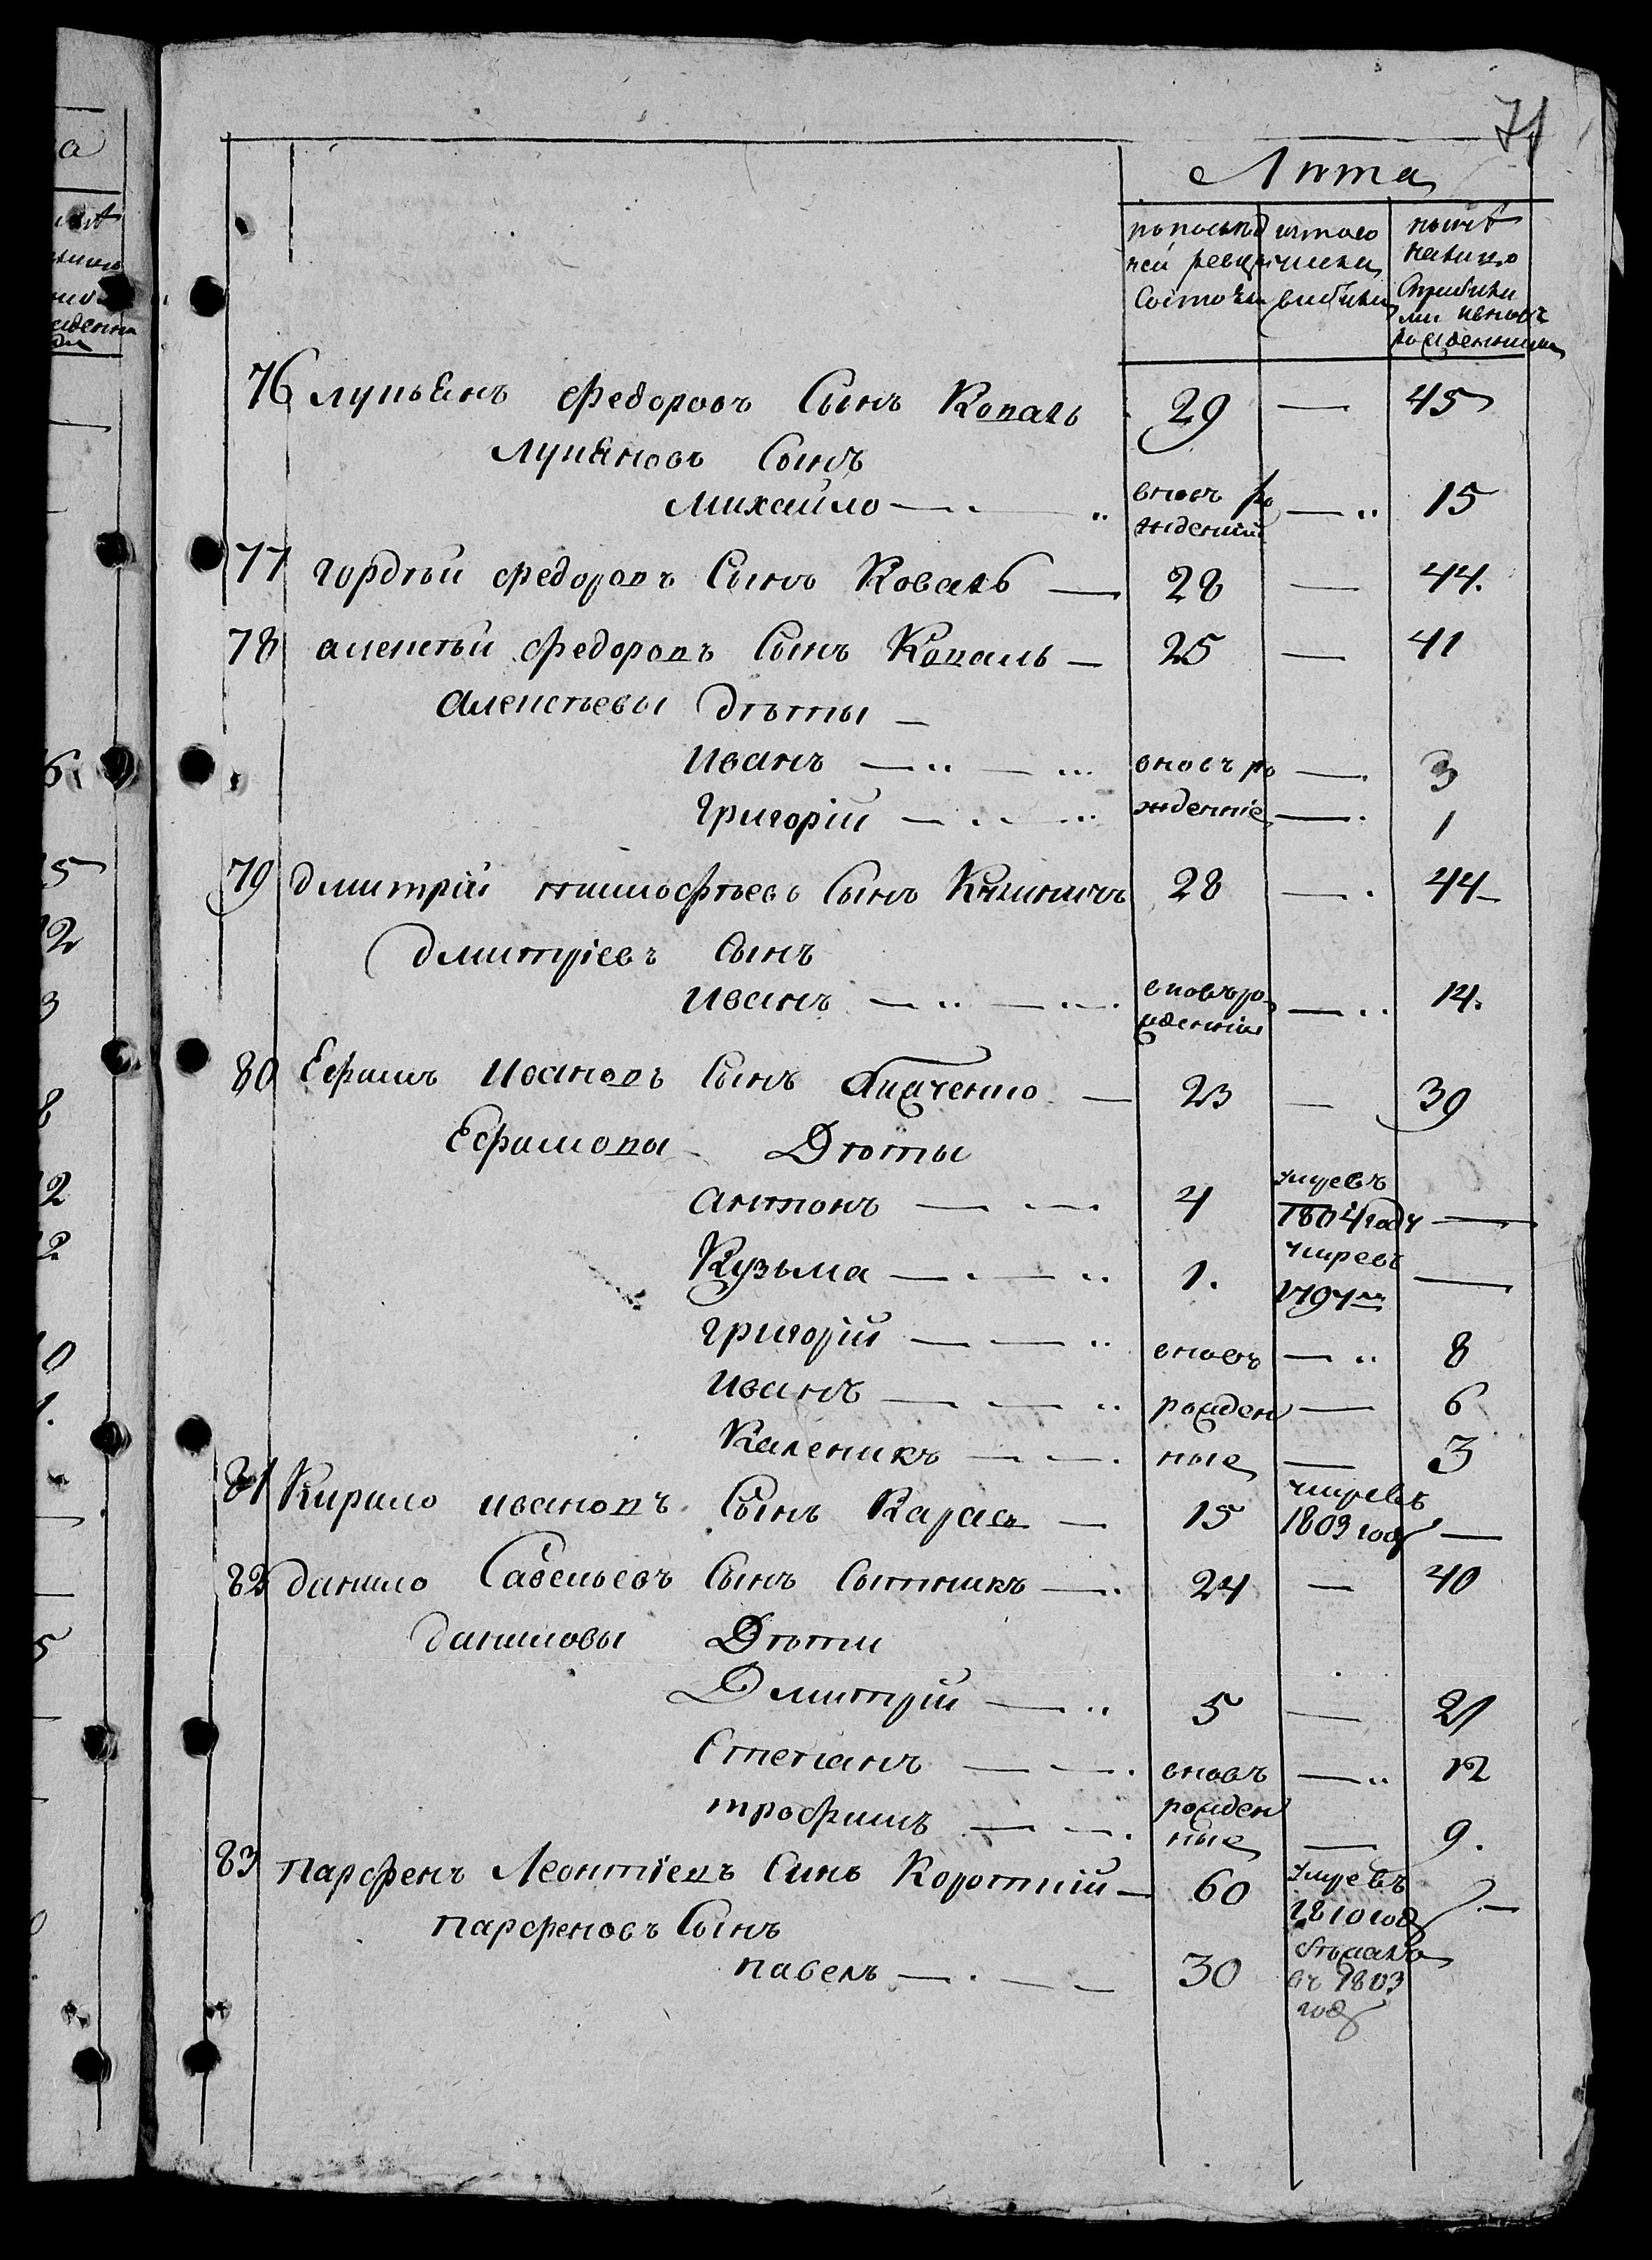 71
Лѣта
попослѣд изтого нынѣ
ней реви числа налицо
состояли выбыли Сприбылы
ми ивновъ
рожденными
76 лукьянъ Федоровъ Сынъ Коваль 29 — 45
лукяновъ Сынъ
Михайло — вновъ ро — 15
жденный
77 гордѣй Федоровъ Сынъ Коваль — 28 — 44.
78 алексѣй Федоровъ Сынъ Коваль — 25 — 41
алексѣевы дѣты —
иванъ — вновъ ро — 3
григорій — жденніе — 1
79 дмитрій тимофѣевъ Сынъ 28 — 44
дмитріевъ сынъ
иванъ — вновъ ро — 14.
жденній
80 Ефимъ ивановъ Сынъ — 23 — 39
Ефимовы Дѣты
антонъ — 4 умревъ
1804 году —
Кузьма — 1. умревъ
1797 —
григорій — вновъ — 8
иванъ — рожден — 6
Каленикъ — ные — 3
81 Кирило ивановъ Сынъ Карась — 15 умревъ
1803 году —
82 данило Савельевъ Сынъ Сытникъ — 24 — 40
даниловы Дѣти
Дмитрій — 5 — 21
Степанъ — вновъ — 12
рожден
трофимъ — ные — 9.
83 парфенъ Леонтіевъ Синъ Короткій — 60 умревъ
1810 год —
парфеновъ Сынъ
павелъ — 30 бѣжалъ
въ 1803
год